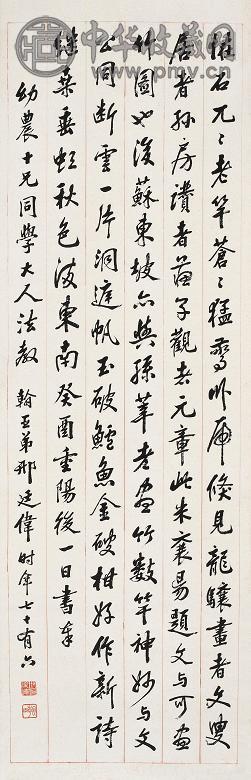 中华收藏网
怪石兀〻老竿蒼〻猛鷙卧虎倏見龍驤畫者文叟
居者孫房讃者子觀者元章此米襄易題文与可畫
竹圖也後蘇東坡亦與孫莘老畫竹數竿神妙与文
公同断雲一片洞庭帆玉破鱸魚金破柑好作新詩
继桑垂虹秋色波東南癸酉重陽後一日書奉
幼農十兄同學大人法教 翰弟邢廷偉时年七十有六